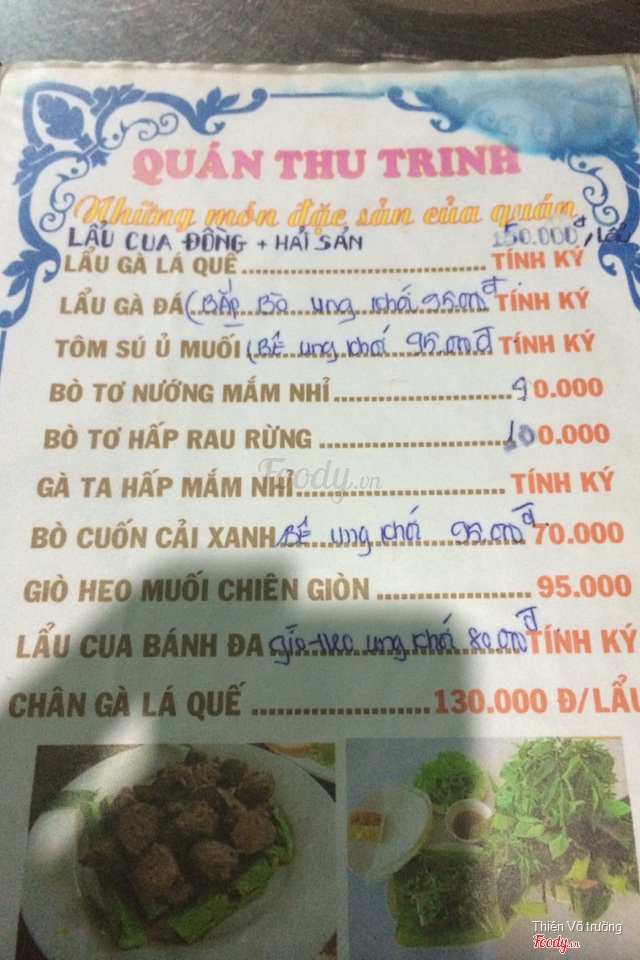 QUÁN THU TRINH
Những món đặc sản của quán
LẨU CUA ĐỒNG + HẢI SẢN 150.000đ/LẨU
LẨU GÀ LÁ QUẾ ........ TÍNH KÝ
LẨU GÀ ĐÁ (BẮP Bò ung khói 95.000đ TÍNH KÝ
TÔM SÚ Ủ MUỐI (BÊ ung khói 95.000đ TÍNH KÝ
BÒ TƠ NƯỚNG MẮM NHỈ ........ 90.000
BÒ TƠ HẤP RAU RỪNG ........ 100.000
GÀ TA HẤP MẮM NHỈ ........ TÍNH KÝ
BÒ CUỐN CẢI XANH BÊ ung khói 95.000đ 70.000
GIÒ HEO MUỐI CHIÊN GIÒN ........ 95.000
LẨU CUA BÁNH ĐA giò heo ung khói 80.000đ TÍNH KÝ
CHÂN GÀ LÁ QUẾ ........ 130.000 Đ/LẨU
Foody.vn
Thiện Võ trường
Foody.vn